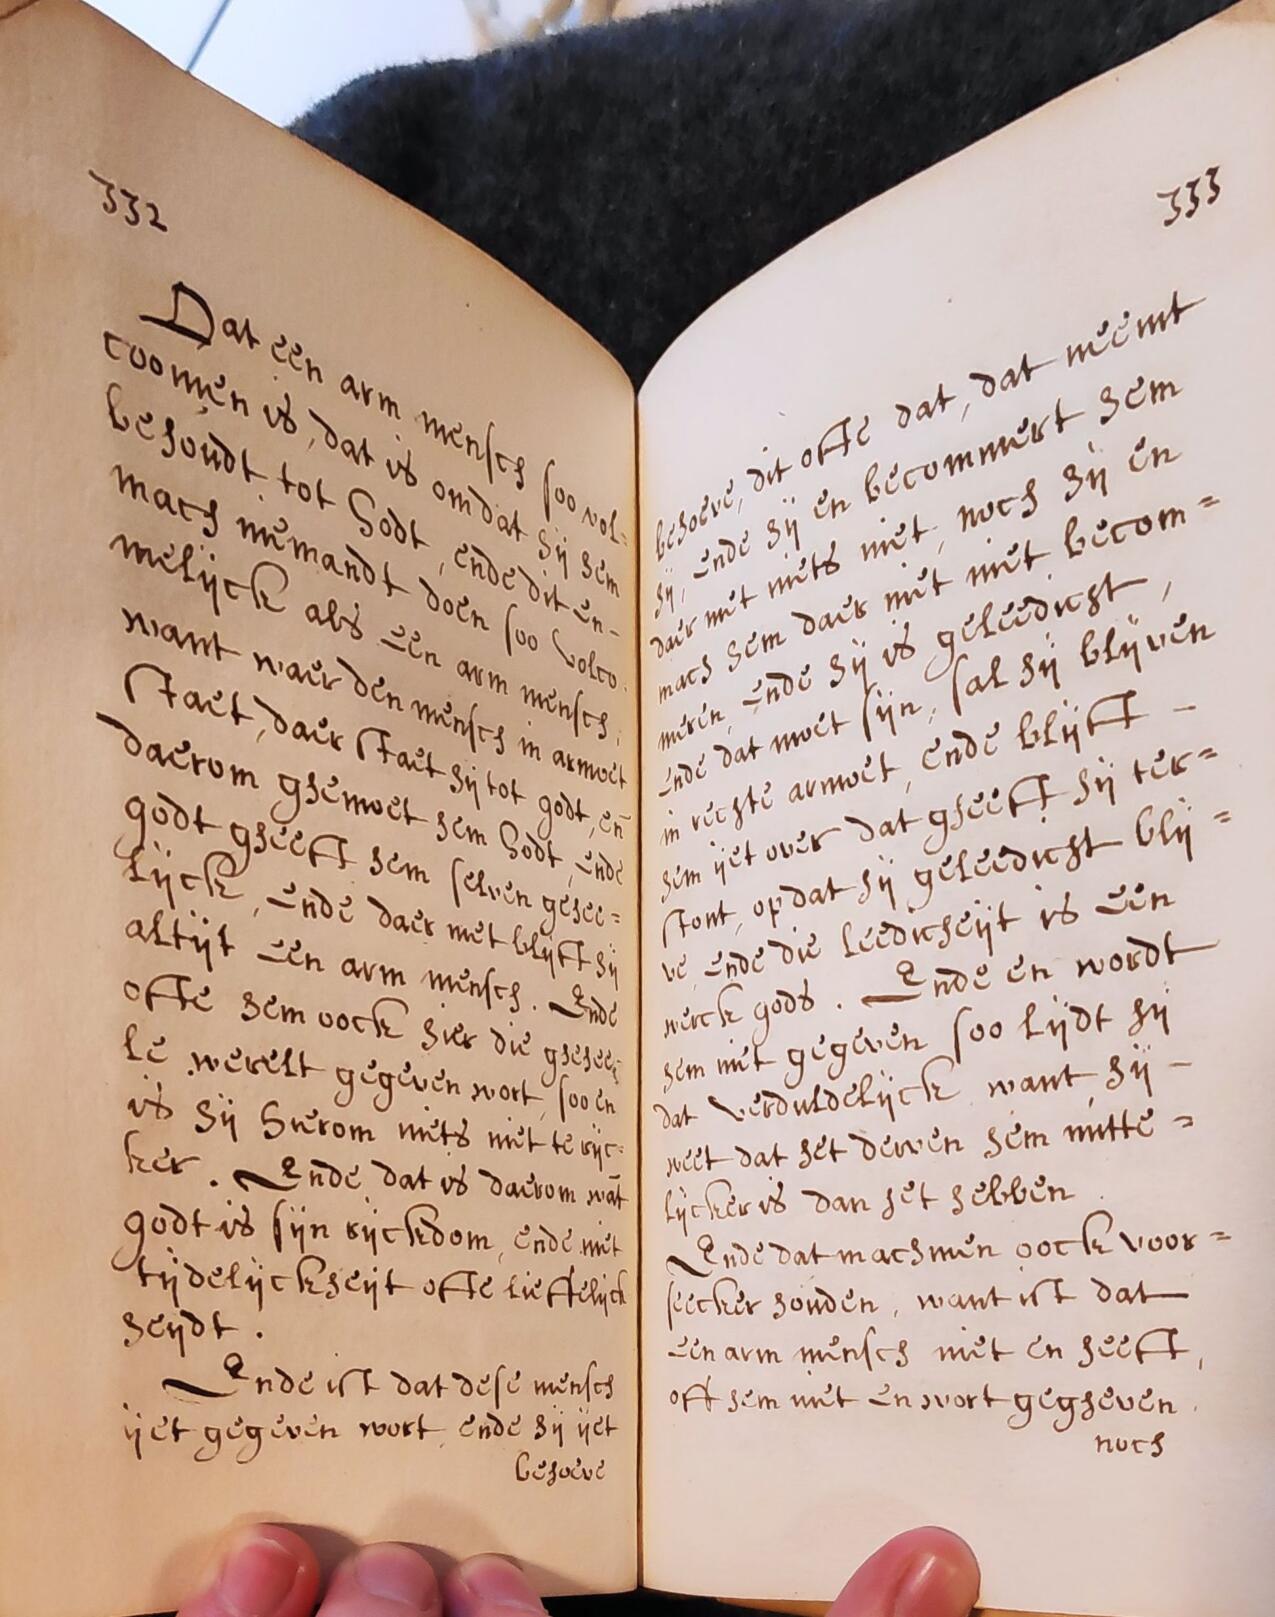 332
Dat een arm mensch soo vol-
coomen is, dat is omdat hij hem
behoudt tot Godt, ende dit en-
mach niemandt doen soo volco.
melijck als een arm mensch,
want waer den mensch in armoet
staet, daer staet hij tot godt, en
daerom ghemoet hem Godt, ende
godt gheeft hem selven gehee=
lijck, ende daer met blijft hij
altijt een arm mensch. Ende
ofte hem oock hier die ghehee=
le werelt gegeven wort, soo en
is hij hierom niets niet te rijc=
ker. Ende dat is daerom wāt
godt is sijn rijckdom, ende niet
tijdelijckheijt ofte lieffelijck
heijdt.
Ende ist dat dese mensch
ijet gegeven wort ende hij ijet
behoeve
333
behoeve, dit ofte dat, dat neemt
hij, ende hij en becommert hem
daer met niets niet, noch hij en
mach hem daer met niet becom=
meren, ende hij is geleedicht,
ende dat moet sijn, sal hij blijven
in rechte armoet, ende blijft -
hem ijet over dat gheeft hij ter=
stont, op dat hij geleedicht blij=
ve, ende die leedicheijt is een
werck gods. Ende en wordt
hem niet gegeven soo lijdt hij
dat verduldelijck want hij -
weet dat het derven hem nutte=
lijcker is dan het hebben
Ende dat machmen oock voor=
seecker houden, want ist dat
een arm mensch niet en heeft,
oft hem niet en wort gegheven.
noch